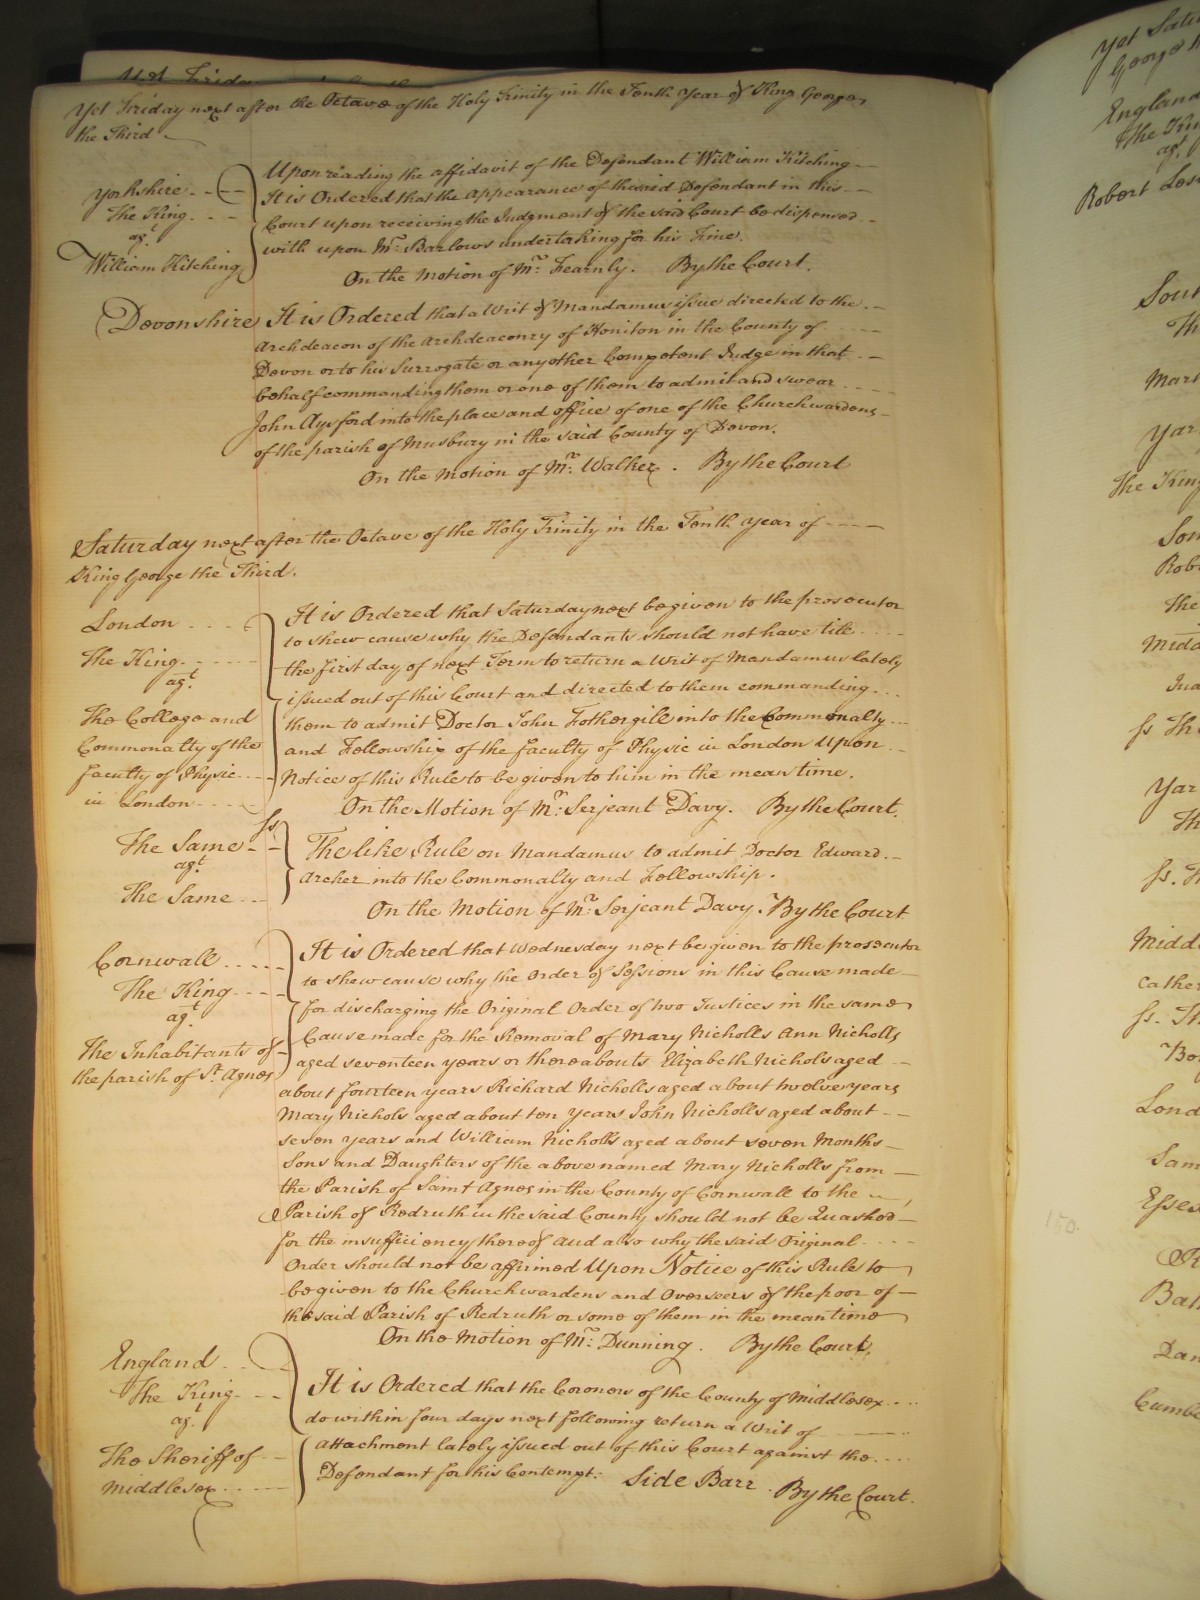 Yet Friday next after the Octave of the Holy Trinity in the Tenth Year of King George
the Third
Yorkshire
The King
agt.
William Kitching
Upon reading the affidavit of the Defendant William Kitching
It is Ordered that the Appearance of the said Defendant in this
Court upon receiving the Judgment of the said Court be dispensed
with upon Mr. Barlows undertaking for his Fine.
On the Motion of Mr. Fearnly. By the Court.
Devonshire It is Ordered that a Writ of Mandamus issue directed to the
Archdeacon of the Archdeaconry of Honiton in the County of
Devon or to his Surrogate or any other Competent Judge in that
behalf commanding them or one of them to admit and swear
John Aysford into the place and office of one of the Churchwardens
of the parish of Musbury in the said County of Devon.
On the Motion of Mr. Walker. By the Court
Saturday next after the Octave of the Holy Trinity in the Tenth Year of
King George the Third.
London
The King
agt.
The College and
Commonalty of the
faculty of Physic
in London
It is Ordered that Saturday next be given to the prosecutor
to shew cause why the Defendants should not have till
the first day of next Term to return a Writ of Mandamus lately
issued out of this Court and directed to them commanding
them to admit Doctor John Fothergill into the Commonalty
and Fellowship of the faculty of Physic in London Upon
Notice of this Rule to be given to him in the mean time.
On the Motion of Mr. Serjeant Davy. By the Court.
ss
The Same
agt.
The Same
The like Rule on Mandamus to admit Doctor Edward
Archer into the Commonalty and Fellowship.
On the Motion of Mr. Serjeant Davy. By the Court
Cornwall
The King
agt.
The Inhabitants of
the parish of St. Agnes
It is Ordered that Wednesday next be given to the prosecutor
to shew cause why the Order of Sessions in this Cause made
for discharging the Original Order of two Justices in the same
Cause made for the Removal of Mary Nicholls Ann Nicholls
aged seventeen years or thereabouts Elizabeth Nichols aged
about fourteen years Richard Nicholls aged about twelve years
Mary Nichols aged about ten years John Nicholls aged about
seven years and William Nicholls aged about seven Months
Sons and Daughters of the above named Mary Nicholls from
the Parish of Saint Agnes in the County of Cornwall to the
Parish of Redruth in the said County should not be Quashed
for the insufficiency thereof and also why the said Original
Order should not be affirmed Upon Notice of this Rule to
be given to the Churchwardens and Overseers of the poor of
the said Parish of Redruth or some of them in the mean time
On the Motion of Mr. Dunning. By the Court.
England
The King
agt.
The Sheriff of
Middlesex
It is Ordered that the Coroners of the County of Middlesex
do within four days next following return a Writ of
attachment lately issued out of this Court against the
Defendant for his Contempt. Side Barr. By the Court.
Yet Satu
George
England
The Kin
agt.
Robert
Sout
Th
Mart
Yar
The King
Som
Rob
The
Midd
ss Th
Yar
Th
ss.
Midd
Cather
ss. Th
Lond
Sam
Essex
Bat
Dan
Cumbe
150.